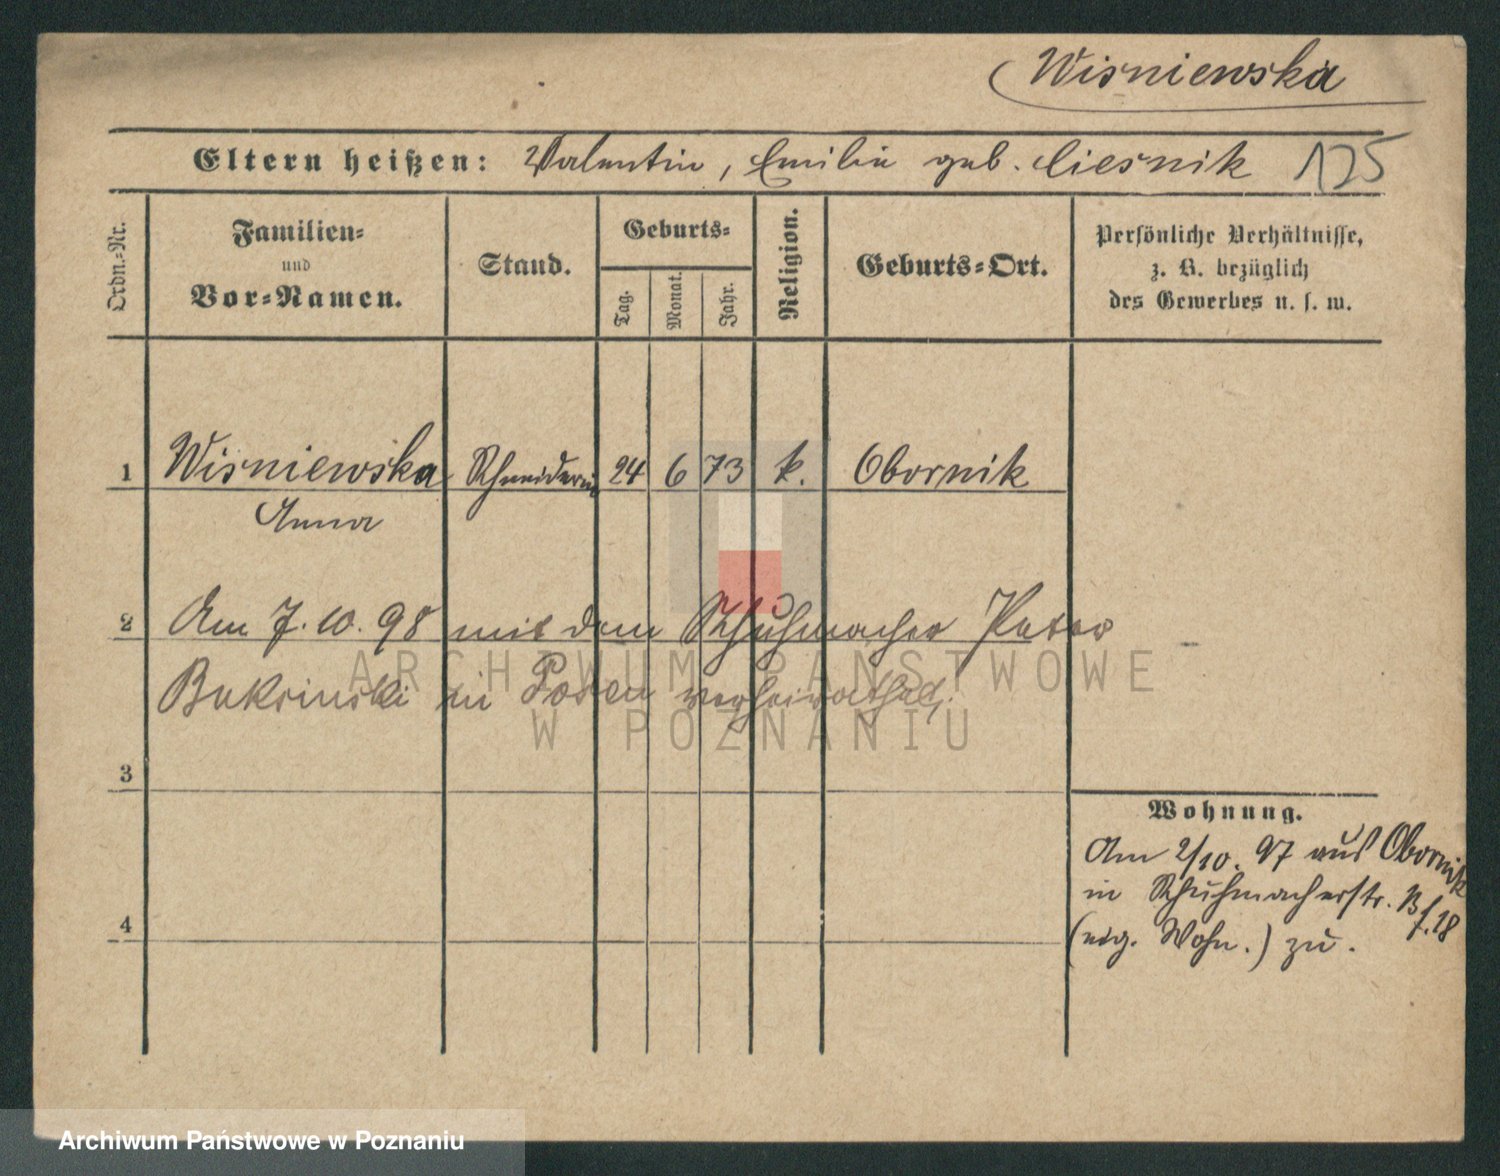 Wisniewska
Eltern heißen: Valentin, Emilie geb. Ciesnik 125
Ordn.-Nr.
Familien-
und
Vor-Namen.
Stand.
Geburts-
Tag.
Monat.
Jahr.
Religion.
Geburts-Ort.
Persönliche Verhältnisse,
z. B. bezüglich
des Gewerbes u. s. w.
1 Wisniewska Schneiderin 24 6 73 k. Obornik
Anna
2 Am 7.10.98 mit dem Schuhmacher Peter
in Posen verheirathet.
3
Wohnung.
Am 2/10. 97 aus Obornik
in Schuhmacherstr. 18
(eig. Wohn.) zu.
4
ARCHIWUM PAŃSTWOWE
W POZNANIU
Archiwum Państwowe w Poznaniu